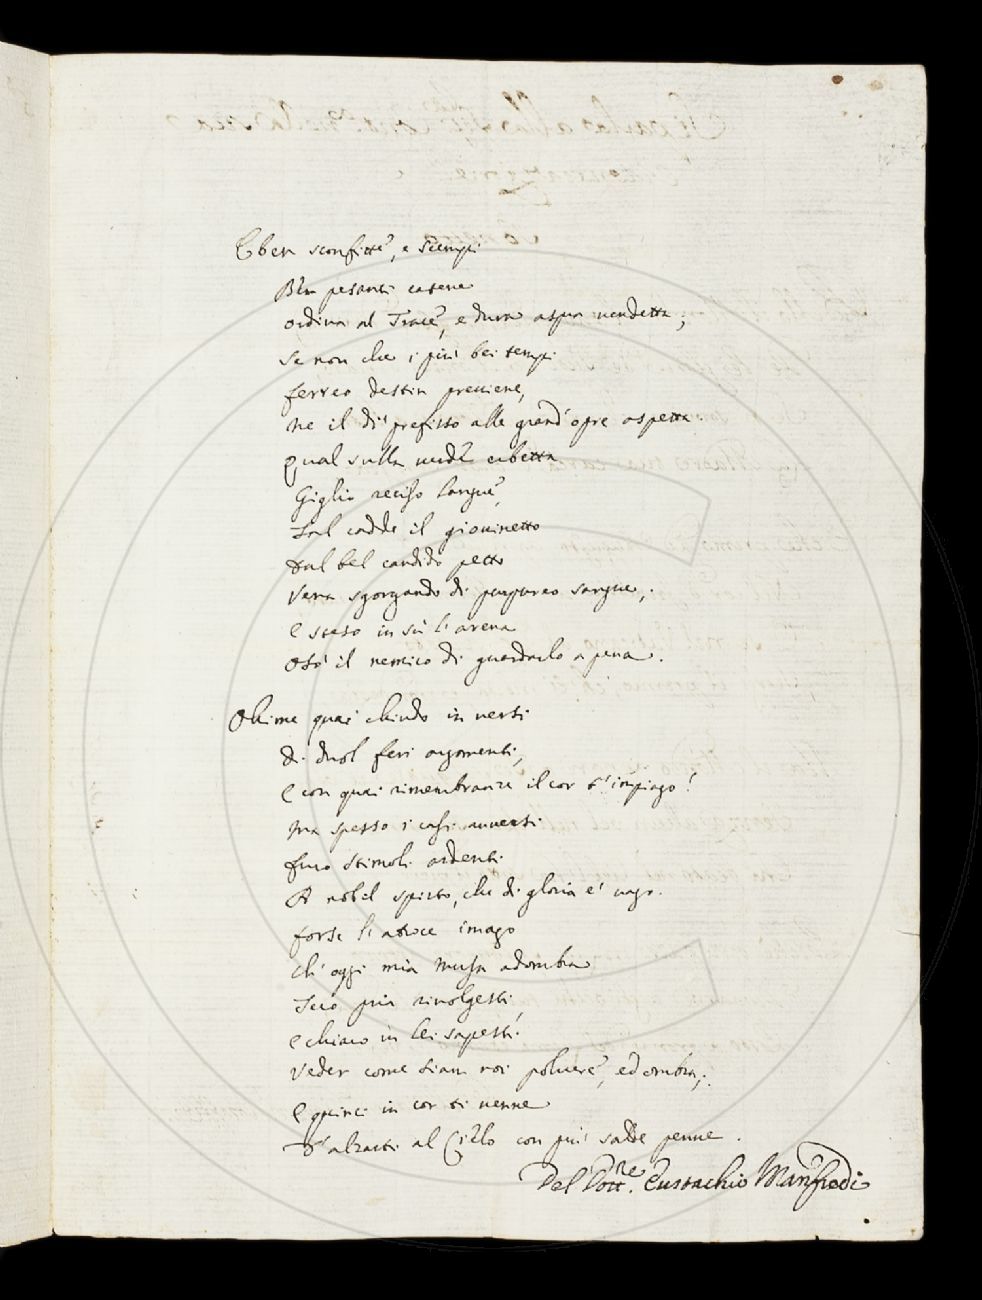 E ben sconfitte, e scempi
Ben pesanti catene
ordina al Trace, e dura aspra vendetta;
se non che i più bei tempi
ferreo destin previene,
ne il dì prefisso alle grand'opre aspetta
qual sulla verde erbetta
Giglio reciso langue,
Tal cadde il giovinetto
dal bel candido petto
vena sgorgando di purpureo sangue,
e steso in sù l'arena
osò il nemico di guardarlo a pena.
Ohime quai chiudo in versi
di duol feri argomenti,
e con quai rimembranze il cor t'impiago!
ma spesso i casi avversi
furo stimoli ardenti
A nobil spirto, che di gloria e' vago.
forse l'atroce imago
ch'oggi mia Musa adombra
Teco pria rivolgesti,
e chiaro in lei sapesti
veder come siam noi polvere, ed ombra;
e quinci in cor ti venne
D'alzarti al Cielo con più salde penne.
Del Dott.re Eustachio Manfredi